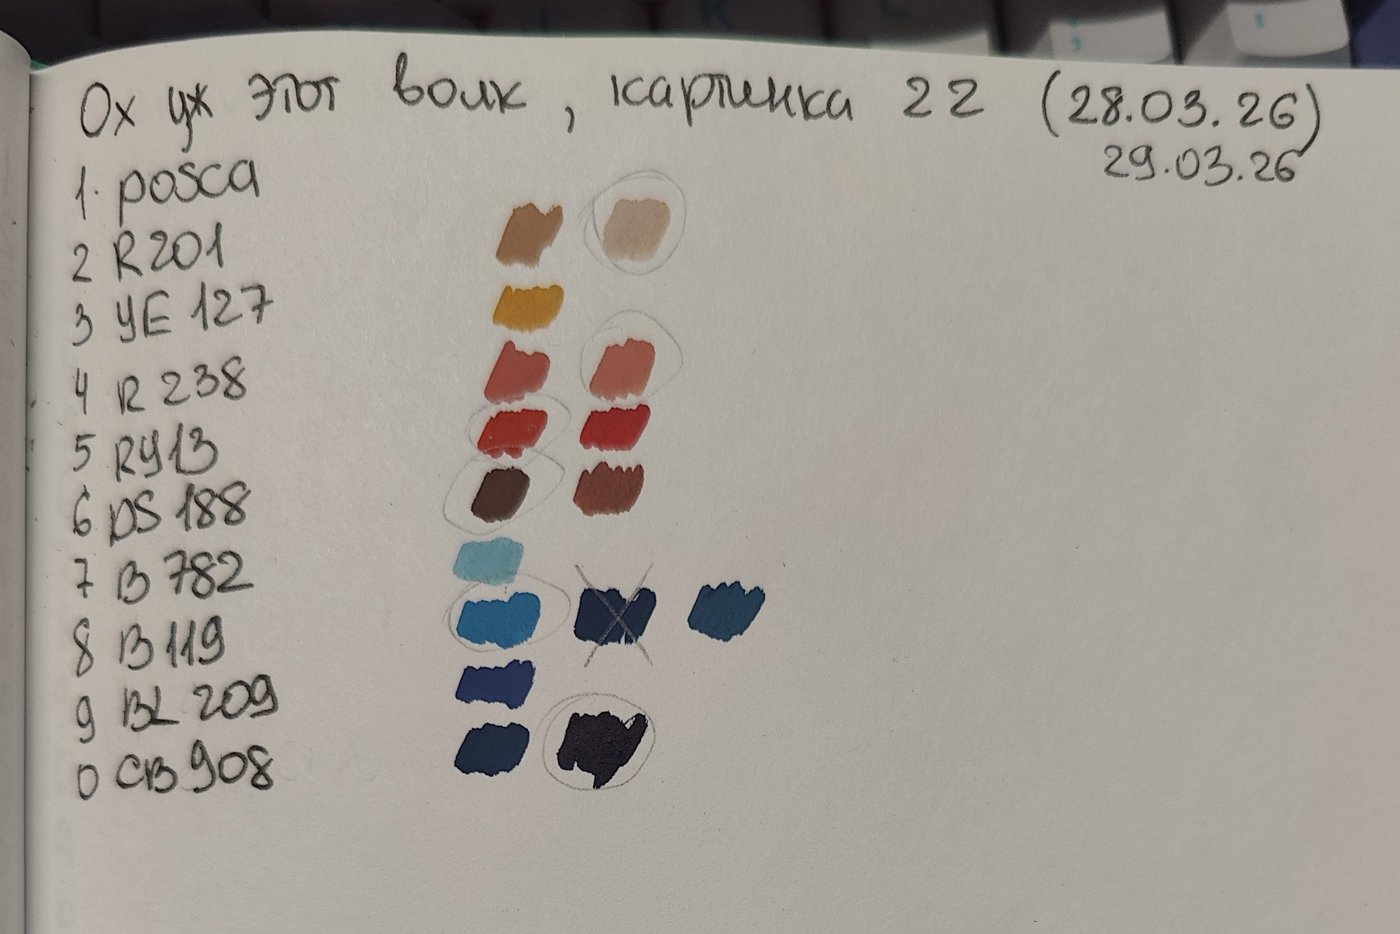 Ох уж этот волк, картинка 22 (28.03.26)
29.03.26
1. posca
2 R201
3 YE 127
4 R 238
5 RY13
6 DS 188
7 B 782
8 B119
9 BL 209
0 CB908